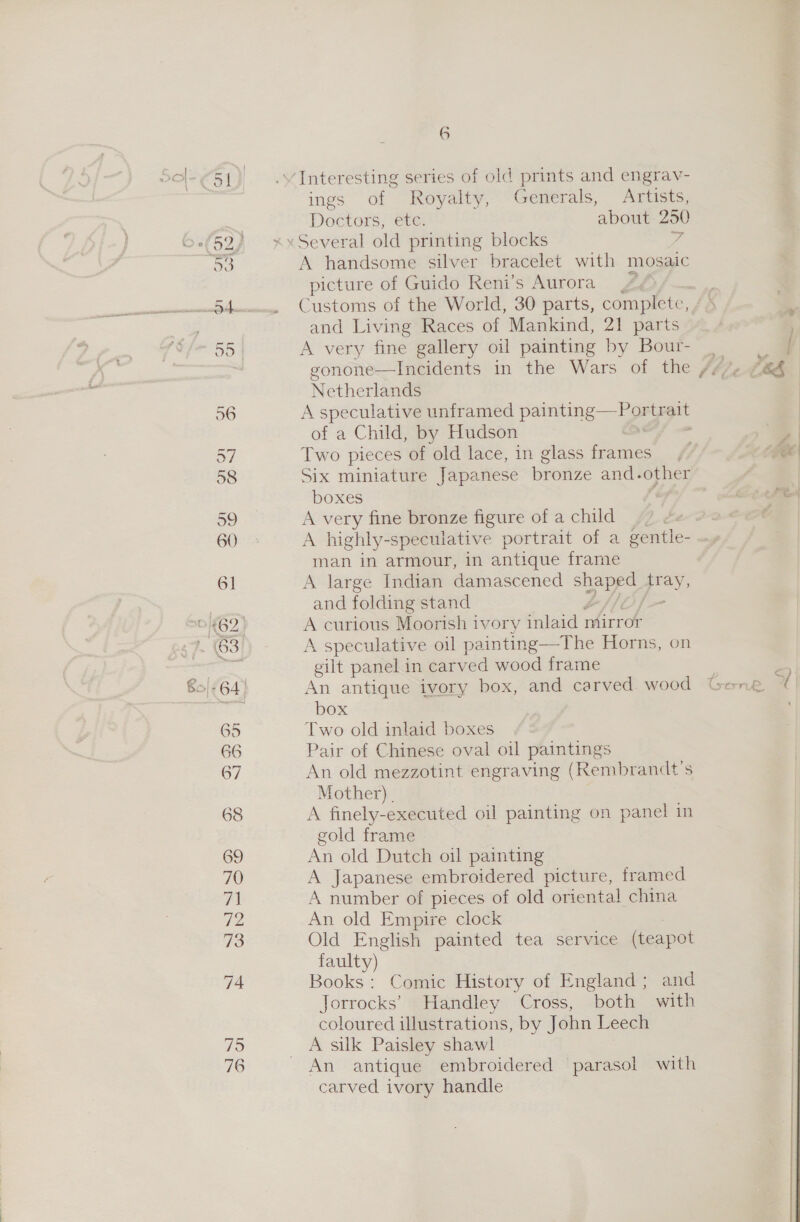 6
50/- (51) Interesting series of old prints and engrav-
ings of Royalty, Generals, Artists,
Doctors, etc. about 250
(52) ××Several old printing blocks 7
53 A handsome silver bracelet with mosaic
picture of Guido Reni's Aurora
54 Customs of the World, 30 parts, complete,
and Living Races of Mankind, 21 parts
55 A very fine gallery oil painting by Bour-
gonone—Incidents in the Wars of the
Netherlands
56 A speculative unframed painting—Portrait
of a Child, by Hudson
57 Two pieces of old lace, in glass frames
58 Six miniature Japanese bronze and other
boxes
59 A very fine bronze figure of a child
60 A highly-speculative portrait of a gentle-
man in armour, in antique frame
61 A large Indian damascened shaped tray,
and folding stand
(62) A curious Moorish ivory inlaid mirror
(63) A speculative oil painting—The Horns, on
gilt panel in carved wood frame
(64) An antique ivory box, and carved wood
box
65 Two old inlaid boxes
66 Pair of Chinese oval oil paintings
67 An old mezzotint engraving (Rembrandt's
Mother)
68 A finely-executed oil painting on panel in
gold frame
69 An old Dutch oil painting
70 A Japanese embroidered picture, framed
71 A number of pieces of old oriental china
72 An old Empire clock
73 Old English painted tea service (teapot
faulty)
74 Books: Comic History of England; and
Jorrocks' Handley Cross, both with
coloured illustrations, by John Leech
75 A silk Paisley shawl
76 An antique embroidered parasol with
carved ivory handle